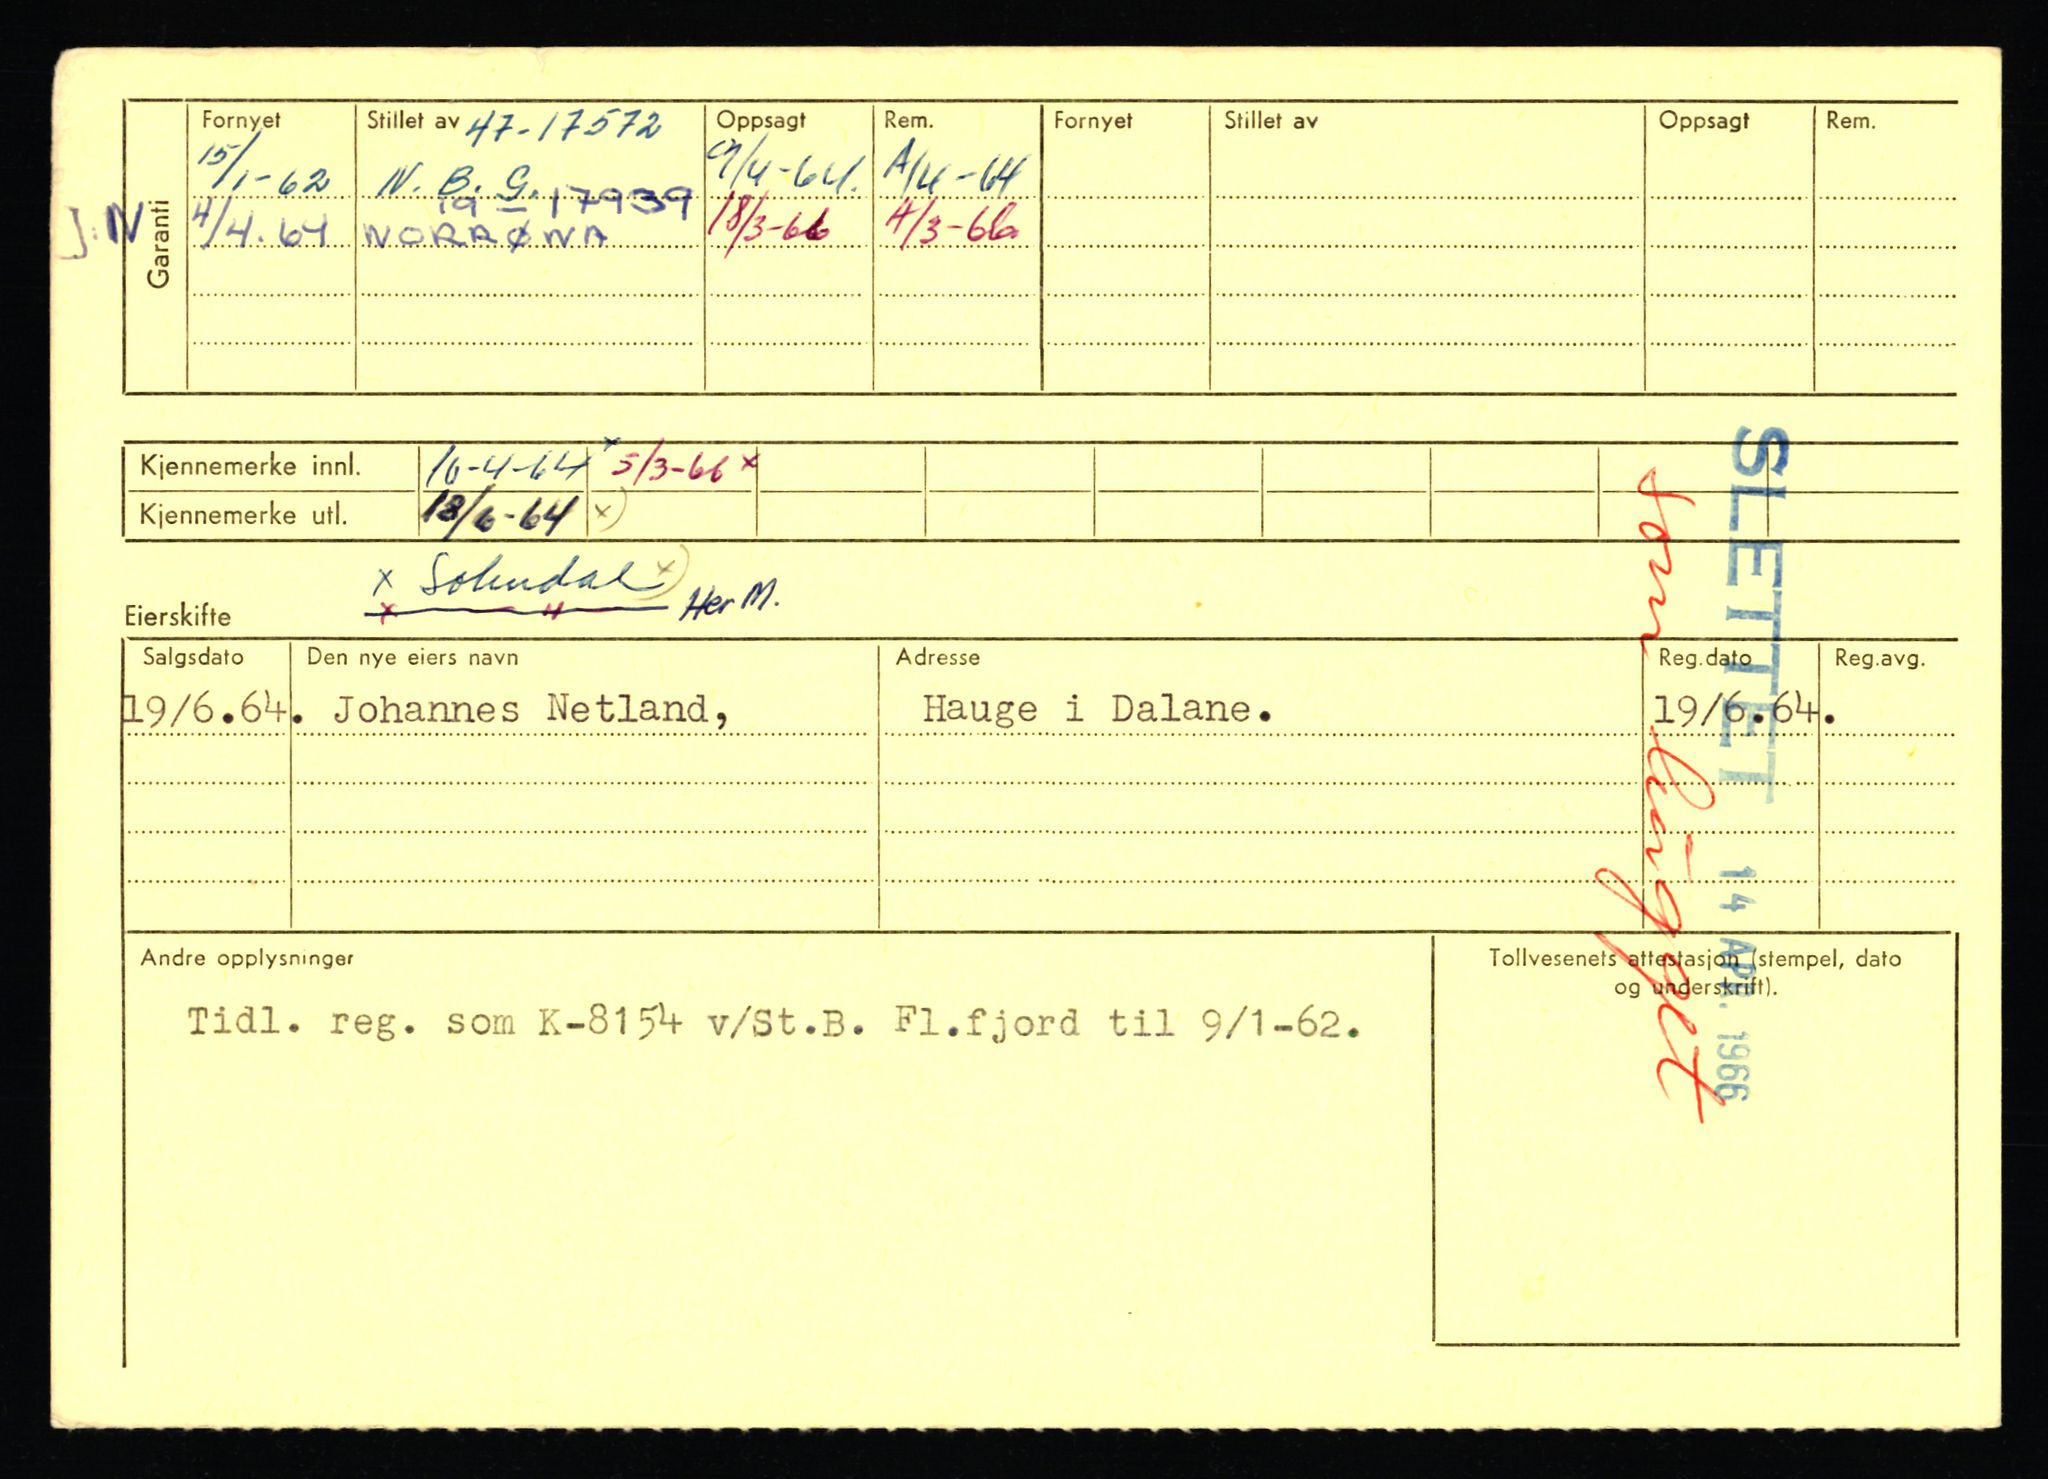 Fornyet Stillet av 47-17572 Oppsagt Rem. Fornyet Stillet av Oppsagt Rem.
15/1-62 N. B. G. 9/4-64. A/4-64
19-17939
J.N 4/4.64 NORRØNA 18/3-66 A/3-66
Garanti
Kjennemerke innl. 10-4-64 x 5/3-66 x
Kjennemerke utl. 18/6-64 x)
x Sokndal x) Her M.
Eierskifte
Salgsdato Den nye eiers navn Adresse Reg.dato Reg.avg.
19/6.64. Johannes Netland, Hauge i Dalane. 19/6.64.
Andre opplysninger
Tidl. reg. som K-8154 v/St.B. Fl.fjord til 9/1-62.
Tollvesenets attestasjon (stempel, dato
og underskrift).
SLETTET 14 APR. 1966